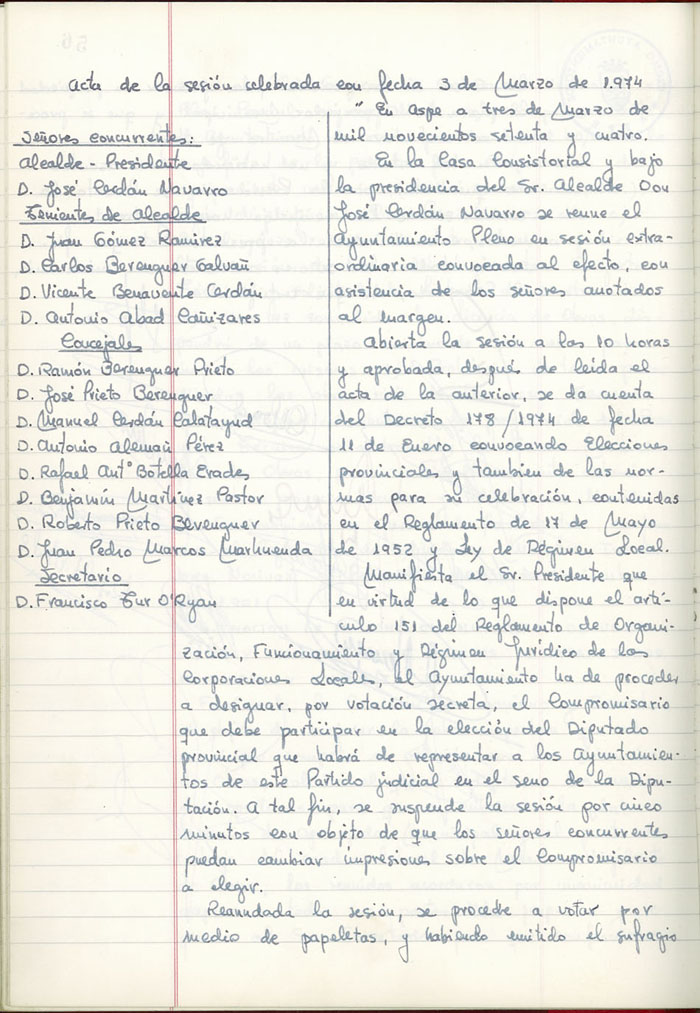 Acta de la sesión celebrada con fecha 3 de Marzo de 1.974
Señores concurrentes:
Alcalde - Presidente
D. José Cerdán Navarro
Tenientes de Alcalde
D. Juan Gómez Ramirez
D. Carlos Berenguer Galvañ
D. Vicente Benavente Cerdán
D. Antonio Abad Cañizares
Concejales
D. Ramón Berenguer Prieto
D. José Prieto Berenguer
D. Manuel Cerdán Calatayud
D. Antonio Alemañ Pérez
D. Rafael Antº Botella Erades
D. Benjamín Martínez Pastor
D. Roberto Prieto Berenguer
D. Juan Pedro Marcos Marhuenda
Secretario
D. Francisco Tur O'Ryan
" En Aspe a tres de Marzo de
mil novecientos setenta y cuatro.
En la Casa Consistorial y bajo
la presidencia del Sr. Alcalde Don
José Cerdán Navarro se reune el
Ayuntamiento Pleno en sesión extra-
ordinaria convocada al efecto, con
asistencia de los señores anotados
al margen.
Abierta la sesión a las 10 horas
y aprobada, después de leida el
acta de la anterior, se da cuenta
del Decreto 178/1974 de fecha
11 de Enero convocando Elecciones
provinciales y tambien de las nor-
mas para su celebración, contenidas
en el Reglamento de 17 de Mayo
de 1952 y Ley de Régimen Local.
Manifiesta el Sr. Presidente que
en virtud de lo que dispone el artí-
culo 151 del Reglamento de Organi-
zación, Funcionamiento y Régimen Jurídico de las
Corporaciones Locales, el Ayuntamiento ha de proceder
a designar, por votación secreta, el Compromisario
que debe participar en la elección del Diputado
provincial que habrá de representar a los Ayuntamien-
tos de este Partido judicial en el seno de la Dipu-
tación. A tal fin, se suspende la sesión por cinco
minutos con objeto de que los señores concurrentes
puedan cambiar impresiones sobre el Compromisario
a elegir.
Reanudada la sesión, se procede a votar por
medio de papeletas, y habiendo emitido el sufragio